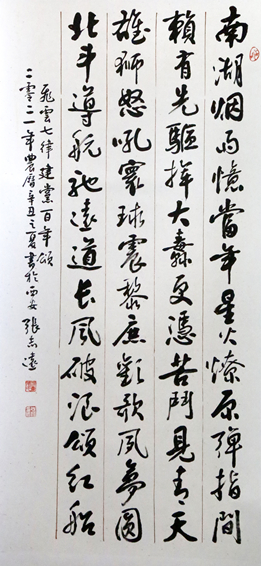 南湖烟雨憶當年星火燎原彈指間
賴有先驅揮大纛更憑苦鬥見青天
雄獅怒吼寰球震黎庶歡歌夙夢圓
北斗導航馳遠道長風破浪頌紅船
飛雲七律建黨百年頌
二零二一年農曆辛丑之夏書於西安張志遠